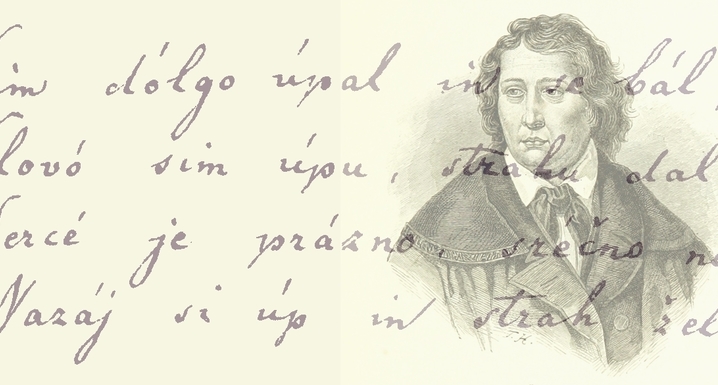 im dólgo úpal in se bál
lovó sim úpu, strahu dal
ercé je prázno, sréčno ne
Nazáj si úp in strah žel